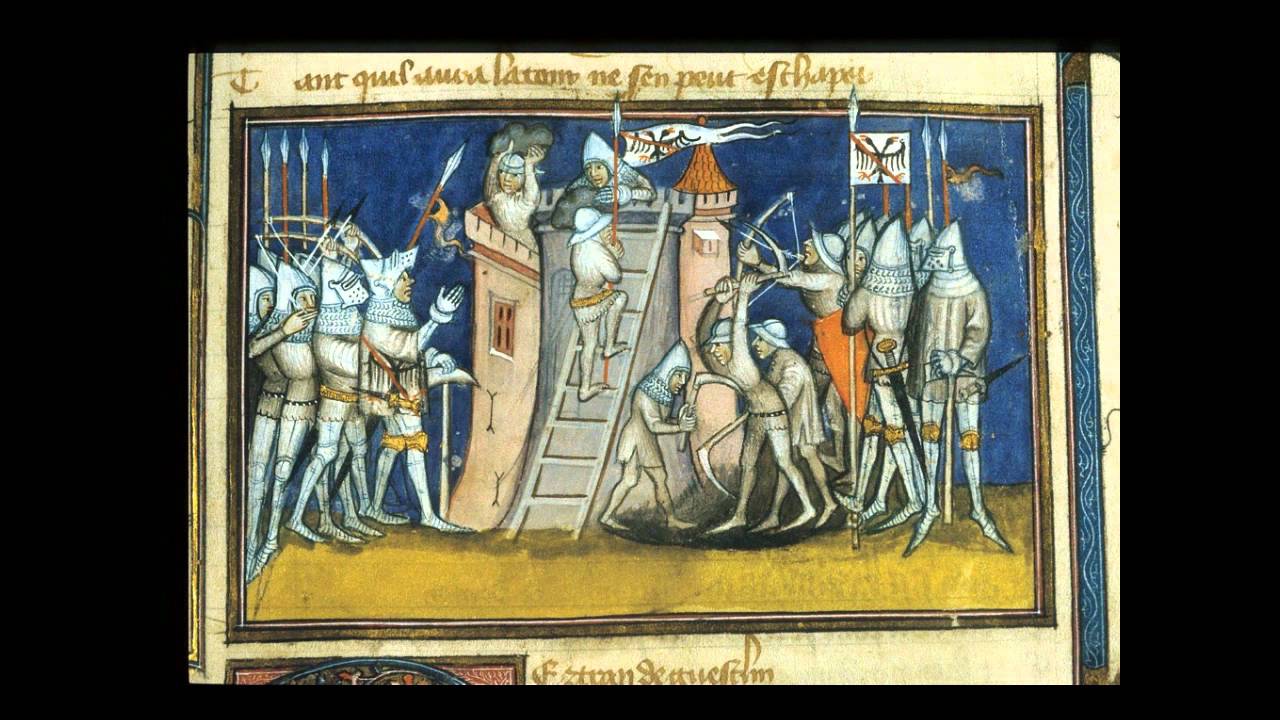 T ant quil aura la tour ne sen peut eschaper
Ertran de guesclin